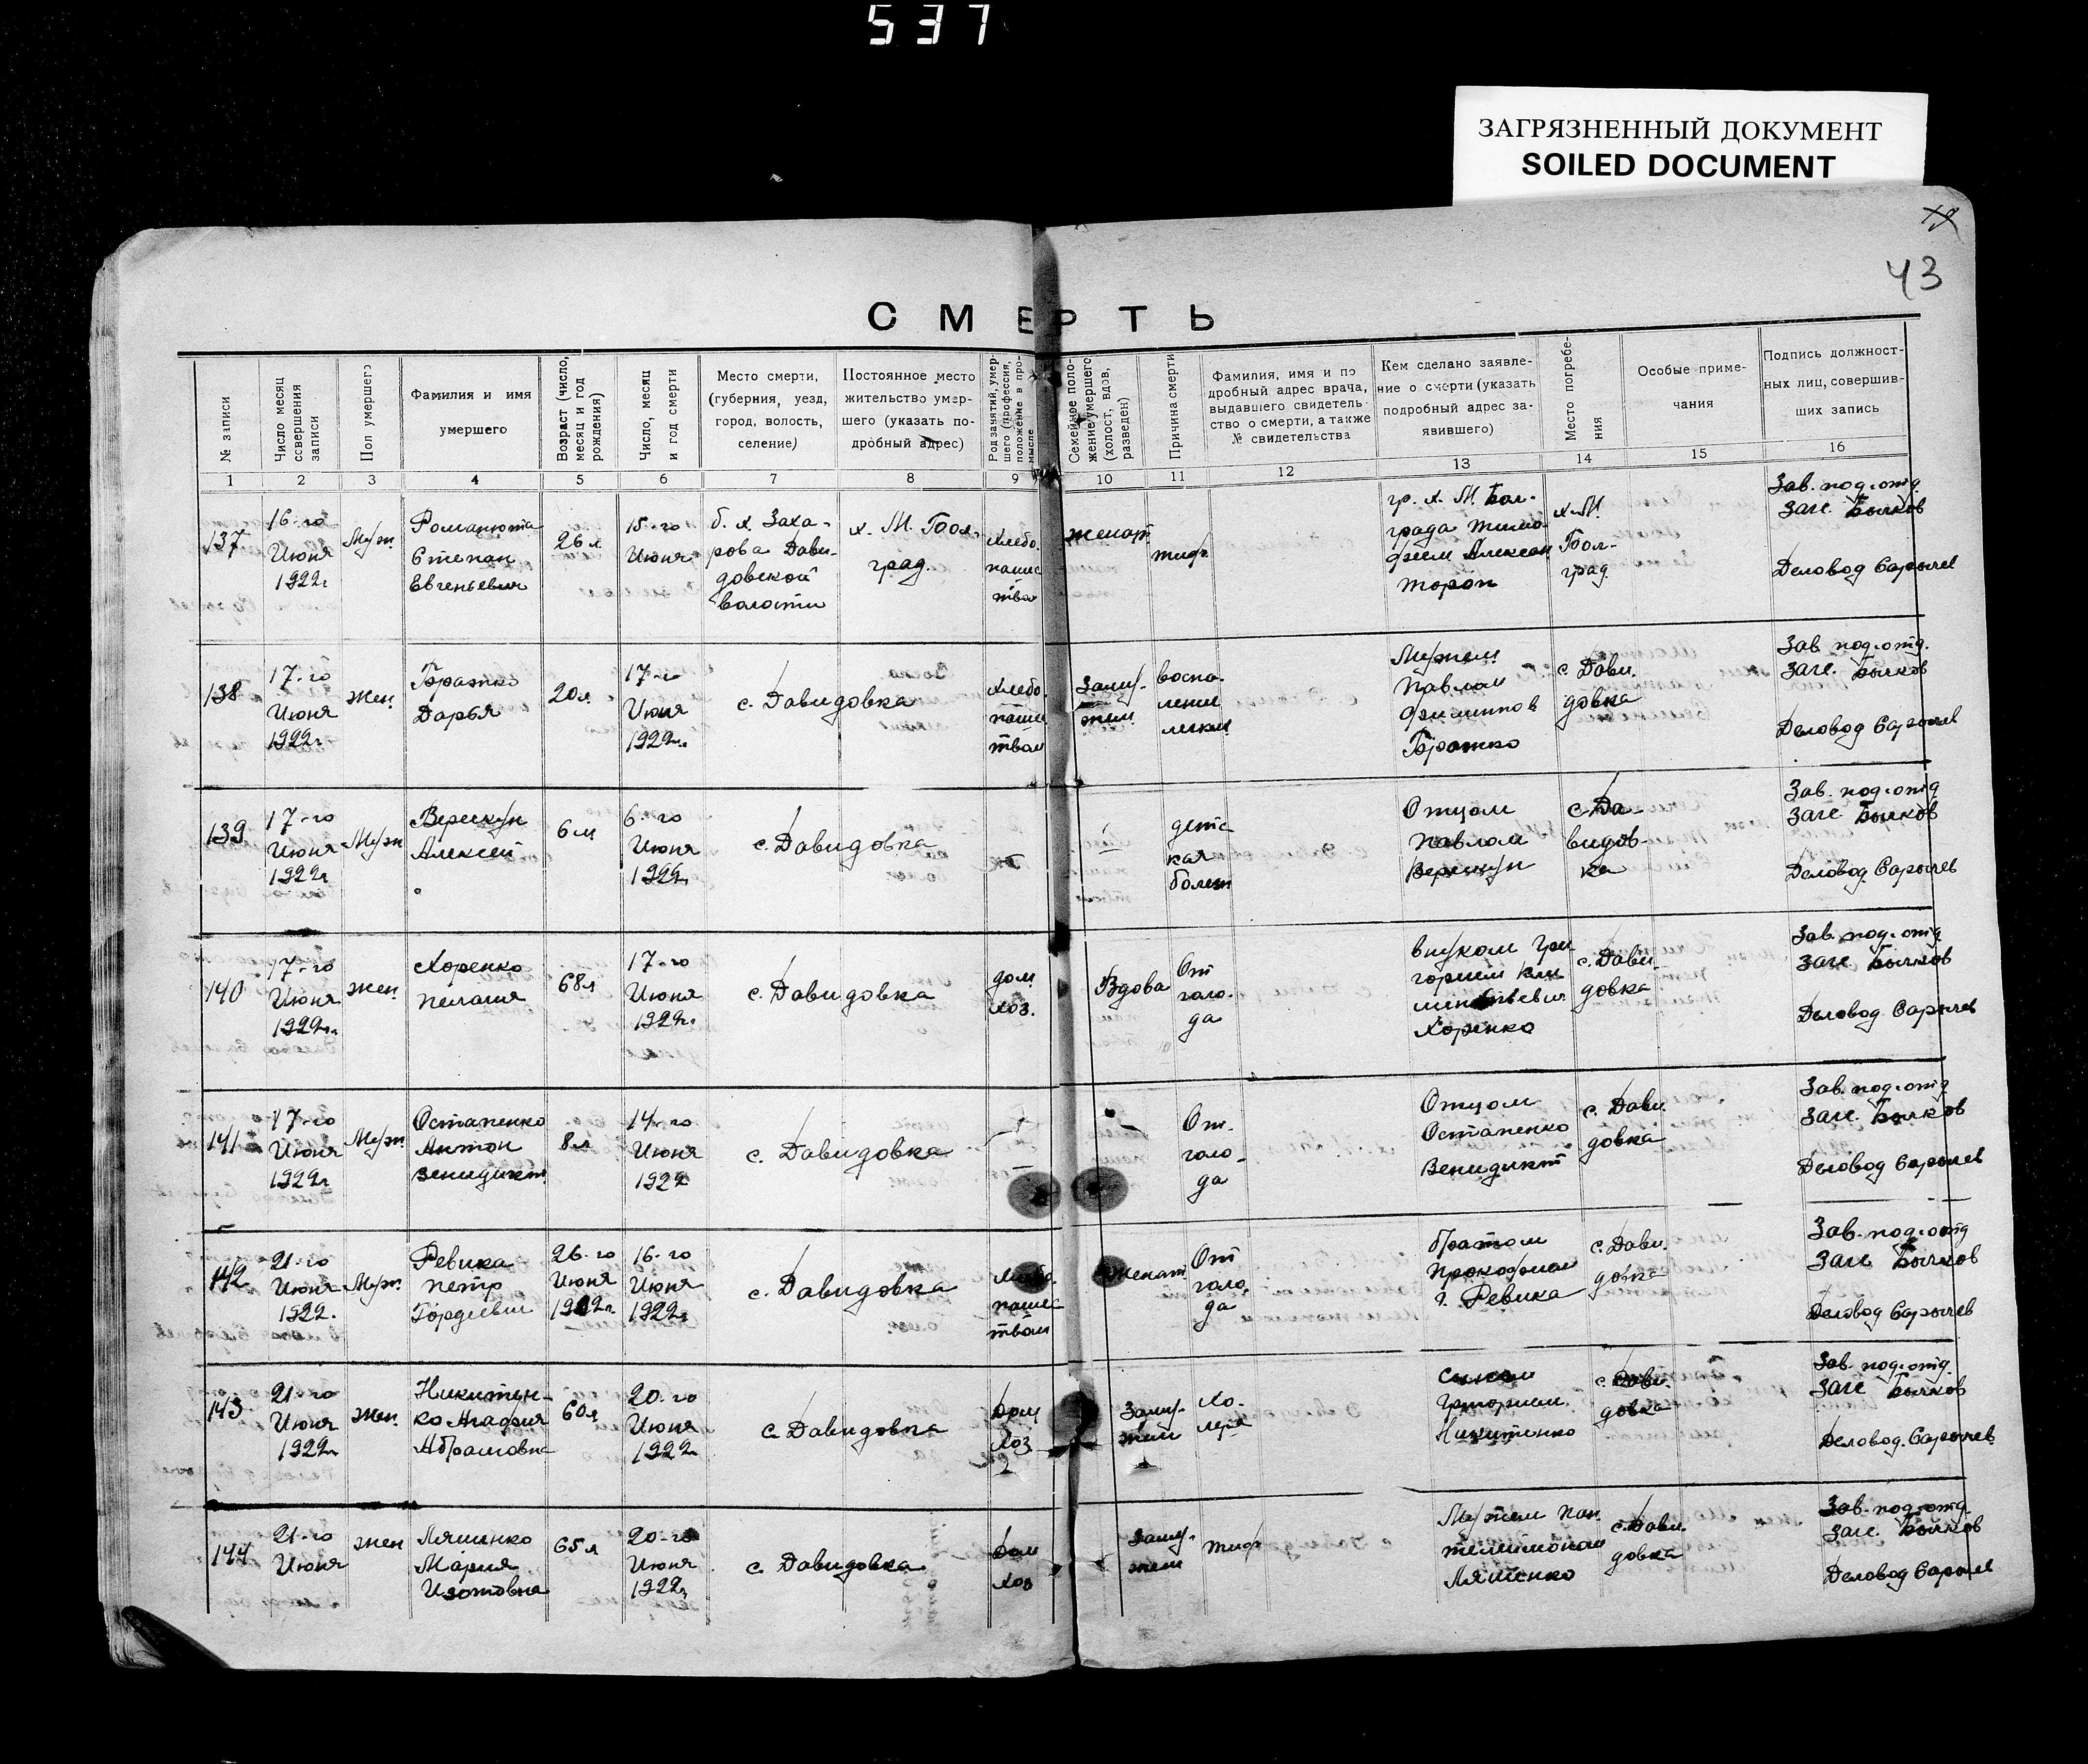 537
ЗАГРЯЗНЕННЫЙ ДОКУМЕНТ
SOILED DOCUMENT
43
СМЕРТЬ
№ записи
Число месяц совершения записи
Пол умершего
Фамилия и имя умершего
Возраст (число, месяц и год рождения)
Число, месяц и год смерти
Место смерти, (губерния, уезд, город, волость, селение)
Постоянное место жительство умершего (указать подробный адрес)
Род занятий, умершего (профессия, положение в промысле
Семейное положение умершего (холост, вдов, разведен)
Причина смерти
Фамилия, имя и подробный адрес врача, выдавшего свидетельство о смерти, а также № свидетельства
Кем сделано заявление о смерти (указать подробный адрес заявившего)
Место погребения
Особые примечания
Подпись должностных лиц, совершивших запись
1 2 3 4 5 6 7 8 9 10 11 12 13 14 15 16
137
16-го
Июня
1922г
Муж
Степан
Евгеньевич
26 л
15-го
Июня
б. х. Заха-
рова Дави-
довской
волости
х. М. Бол.
град
Хлебо
пашес
тво
женат
тиф
гр. х. М. Бол-
града Тимо-
феем Алексан
х. М.
Бол-
град
Зав. под.отд
Загс Бычков
Деловод
138
17-го
Июня
1922г
жен.
Бражко
Дарья
20л
17-го
Июня
1922г.
с. Давидовка
Хлебо
пашес
твом
Заму-
жем
воспа-
ление
легких
Мужем
Павлом
Бражко
с. Дави.
довка
Зав под.отд.
Загс. Бычков
Деловод
139
17-го
Июня
1922г
Муж
Алексей
6 м
6-го
Июня
1922г.
с. Давидовка
детс
кая
болезн
Отцом
Павлом
с. Да-
видов-
ка
Зав. под.отд
Загс Бычков
Деловод
140
17-го
Июня
1922г.
жен.
Хоренко
Пелагия
68л
17-го
Июня
1922г.
с. Давидовка
дом
хоз.
Вдова
От
голо-
да
внуком Гри
горием
Хоренко
с. Дави-
довка
Зав. под.отд
Загс Бычков
Деловод
141
17-го
Июня
1922г
Муж
Остапенко
Антон
Венидикт
8л
14-го
Июня
1922
с. Давидовка
От-
голо-
да
Отцом
Остапенко
Венидикт
с. Дави.
довка
Зав. под.отд
Загс. Бычков
Деловод
142
21-го
Июня
1922.
Муж.
Ревика
Петр
Гордеевич
26-го
Июня
16-го
Июня
1922г
с. Давидовка
Хлебо
пашес
твом
женат
От
голо
да
братом
Прокофием
Г. Ревика
с. Дави.
довка
Зав. под.отд
Загс Бычков
Деловод
143
21-го
Июня
1922г
жен.
Никитен-
ко Агафия
Абрамовна
60л
20-го
Июня
1922
с. Давидовка
Дом
Хоз
Заму-
жем
Хо-
лера
сыном
Григорием
Никитенко
с. Дави.
довка
Зав. под.отд.
Загс Бычков
Деловод.
144
21-го
Июня
жен
Ляшенко
Мария
Изотовна
65л
20-го
Июня
1922г
с. Давидовка
Дом
хоз
Заму-
жем
тиф
Мужем Пан
телимоном
Ляшенко
с. Дави.
довка
Зав. под.отд.
Загс Бычков
Деловод